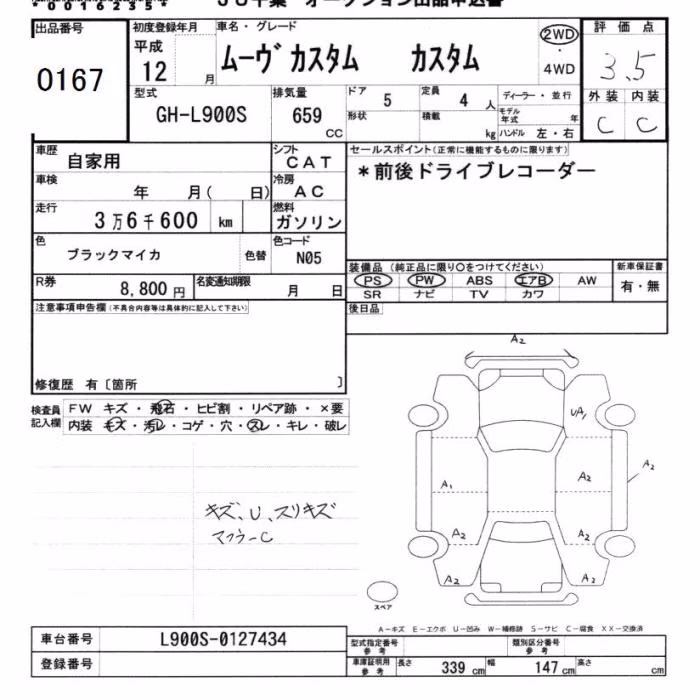 00162354
JU千葉 オークション出品申込書
出品番号 初度登録年月 車名・グレード 2WD 評価点
0167 平成 12 月 ムーヴカスタム カスタム ・ 4WD 3.5
型式 GH-L900S 排気量 659 CC ドア 5 定員 4 人 ディーラー・並行 外装 内装
形状 積載 kg モデル年式 年 C C
ハンドル 左・右
車歴 自家用 シフト CAT セールスポイント(正常に機能するものに限ります)
車検 年 月( 日) 冷房 AC *前後ドライブレコーダー
走行 3万6千600 km 燃料 ガソリン
色 ブラックマイカ 色替 色コード N05
装備品(純正品に限り〇をつけてください) 新車保証書
R券 8,800円 名変通知期限 月 日 PS PW ABS エアB AW 有・無
SR ナビ TV カワ
注意事項申告欄(不具合内容等は具体的に記入して下さい) 後日品
修復歴 有〔箇所 〕
検査員記入欄 FW キズ・飛石・ヒビ割・リペア跡・×要
内装 キズ・汚レ・コゲ・穴・スレ・キレ・破レ
A2
UA1
A2
A1 A2
A2 A2
A2 A2
キズ、U、スリキズ
マフラーC
スペア
A-キズ E-エクボ U-凹み W-補修跡 S-サビ C-腐食 XX-交換済
車台番号 L900S-0127434 型式指定番号 参考 類別区分番号 参考
登録番号 車庫証明用 参考 長さ 339 cm 幅 147 cm 高さ cm